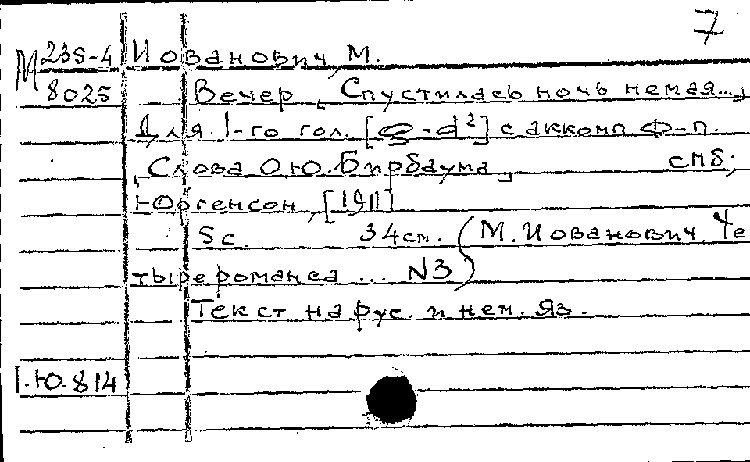 7
М 235-4 Иованович, М.
8025 Вечер „Спустилась ночь немая...„
Для 1-го гол. [g-d²] с аккомп. ф-п.
„Слова О.Ю. Бирбаума„ СПб;
Юргенсон, [1911]
5 с. 34 см. (М. Иованович. Че
тыре романса ... N3)
Текст на рус. и нем. яз.
1.Ю.814